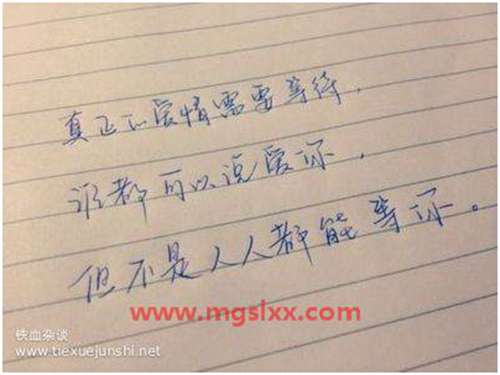 真正的爱情需要等待，
谁都可以说爱你，
但不是人人都能等你。
www.mgslxx.com
铁血杂谈
www.tiexuejunshi.net